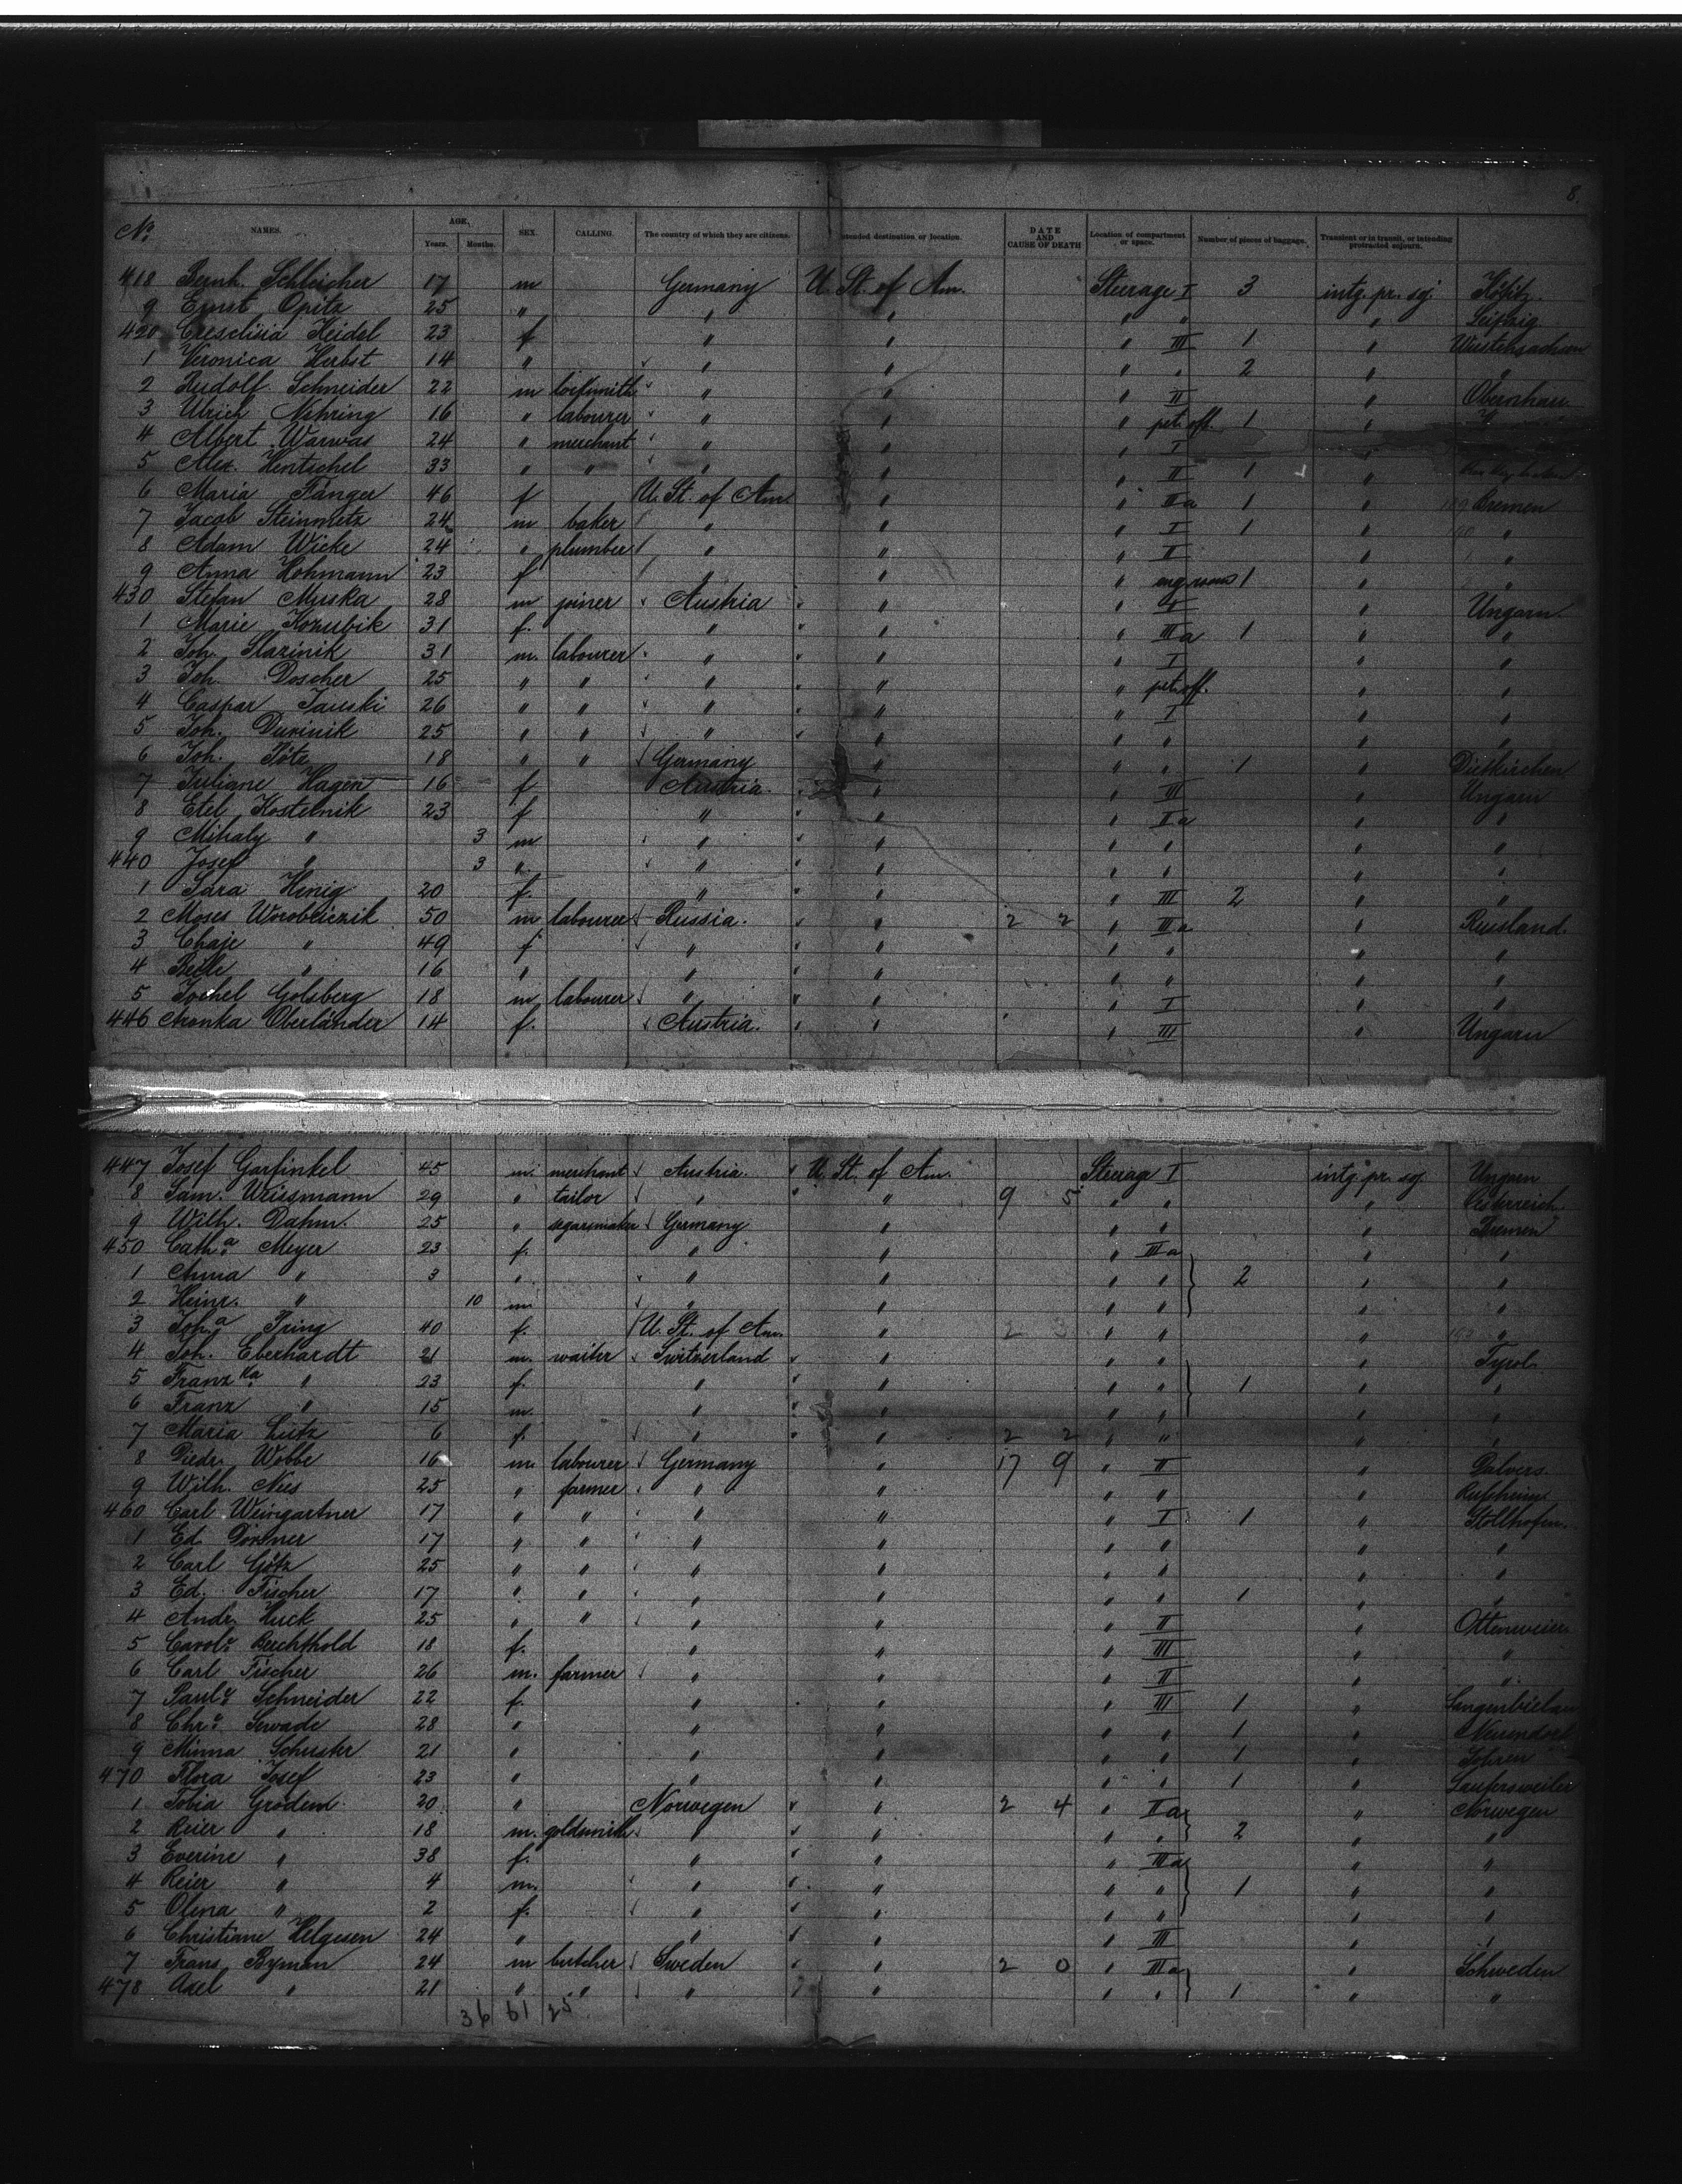 8.
No. NAMES. AGE. Years. Months. SEX. CALLING. The country of which they are citizens. Intended destination or location. DATE AND CAUSE OF DEATH Location of compartment or space. Number of pieces of baggage. Transient or in transit, or intending protracted sojourn.
418 Bernh. Schleicher 17 m Germany U. St. of Am. Steerage I 3 intg. pr. soj.
9 Ernst Opitz 25 " " " " " " Leipzig
420 Heidel 23 f " " " III 1 "
1 Veronica Herbst 14 " " " " " 2 " "
2 Rudolf Schneider 22 m " " " II "
3 Ulrich Nehring 16 " labourer " " " pet. off. 1 "
4 Albert Warwas 24 " merchant " " " I "
5 Alex. Hentschel 33 " " " " " II 1 "
6 Maria Fänger 46 f U. St. of Am. " " IIIa 1 " Bremen
7 Jacob Steinmetz 24 m baker " " " I 1 " "
8 Adam Wicke 24 " plumber " " " II " "
9 Anna Hohmann 23 f " " " 1 " "
430 Stefan Muska 28 m joiner Austria " " I " Ungarn
1 Marie Kozubik 31 f. " " " IIIa 1 " "
2 Joh. Slazinik 31 m. labourer " " " I " "
3 Joh. Doscher 25 " " " " " pet. off. " "
4 Caspar Jauski 26 " " " " " I " "
5 Joh. Durinik 25 " " " " " " " "
6 Joh. 18 " " Germany " " " 1 " Dietkirchen
7 Juliane Hagen 16 f Austria. " " III " Ungarn
8 Etel Kostelnik 23 f " " " IIa " "
9 Mihaly " 3 m " " " " " "
440 Josef " 3 " " " " " " "
1 Sara Henig 20 f. " " " III 2 " "
2 Moses 50 m labourer Russia. " 2 2 " IIIa " Russland.
3 Chaje " 49 f " " " " " "
4 Beile " 16 " " " " " " "
5 Golsberg 18 m labourer " " " I " "
446 Oberländer 14 f. Austria. " " III " Ungarn
447 Josef Garfinkel 45 m. merchant Austria. U. St. of Am. Steerage I intg. pr. soj. Ungarn
8 Sam. Weissmann 29 " tailor " " 9 5 " " " Österreich
9 Wilh. Dahm. 25 " segarsmaker Germany " " " " Bremen
450 Cath.a Meyer 23 f. " " " IIIa " "
1 Anna " 3 " " " " " 2 " "
2 Heinr. " 10 m. " " " " " "
3 Joh.a 40 f. U. St. of Am. " 2 3 " " " "
4 Joh. Eberhardt 21 m. waiter Switzerland " " " " Tyrol
5 Franz.ka " 23 f. " " " " 1 " "
6 Franz " 15 m. " " " " " "
7 Maria Lutz 6 f. " " 2 2 " " " "
8 Diedr. Wobbe 16 m. labourer Germany " 17 9 " II "
9 Wilh. Nees 25 " farmer " " " " "
460 Carl Weingartner 17 " " " " " I 1 " Stollhofen.
1 Ed. 17 " " " " " " " "
2 Carl Götz 25 " " " " " " " "
3 Ed. Fischer 17 " " " " " " 1 " "
4 Andr. Huck 25 " " " " " II " Ottenweier
5 Carol. Bechthold 18 f. " " " III " "
6 Carl Fischer 26 m. farmer " " " II " "
7 Paul.e Schneider 22 f. " " " III 1 " Langenbielau
8 Chr.e 28 " " " " " 1 " Neuendorf
9 Minna Schuster 21 " " " " " 1 " Sohren
470 Flora Josef 23 " " " " " 1 " Laufersweiler
1 Tobia Grodem 20 " Norwegen " 2 4 " IIa " Norwegen
2 Reier " 18 m. goldsmith " " " " 2 " "
3 Everine " 38 f. " " " IIIa " "
4 Reier " 4 m. " " " " 1 " "
5 Olena " 2 f. " " " " " "
6 Christiane Helgesen 24 " " " " III " "
7 Frans Byman 24 m butcher Sweden " 2 0 " IIIa " Schweden
478 Axel " 21 " " " " " " 1 " "
36 61 25